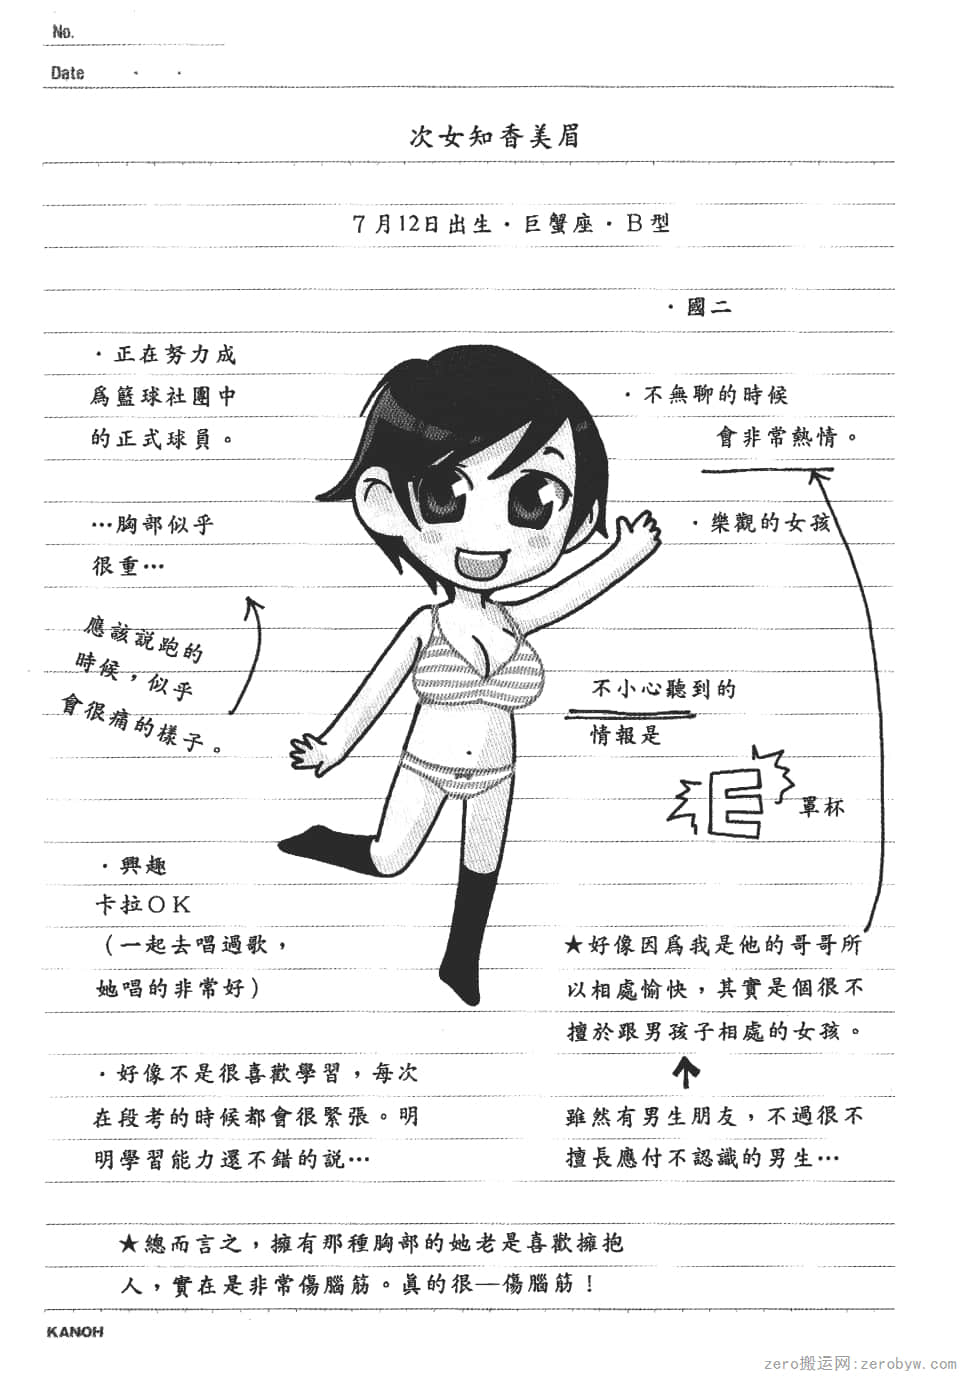 No.
Date
次女知香美眉
7月12日出生·巨蟹座·B型
·國二
·正在努力成
為籃球社團中
的正式球員。
·不無聊的時候
會非常熱情。
…胸部似乎
很重…
·樂觀的女孩
應該說跑的
時候，似乎
會很痛的樣子。
不小心聽到的
情報是
E
罩杯
·興趣
卡拉OK
（一起去唱過歌，
她唱的非常好）
★好像因為我是他的哥哥所
以相處愉快，其實是個很不
擅於跟男孩子相處的女孩。
·好像不是很喜歡學習，每次
在段考的時候都會很緊張。明
明學習能力還不錯的說…
雖然有男生朋友，不過很不
擅長應付不認識的男生…
★總而言之，擁有那種胸部的她老是喜歡擁抱
人，實在是非常傷腦筋。真的很—傷腦筋！
KANOH
zero搬运网:zerobyw.com